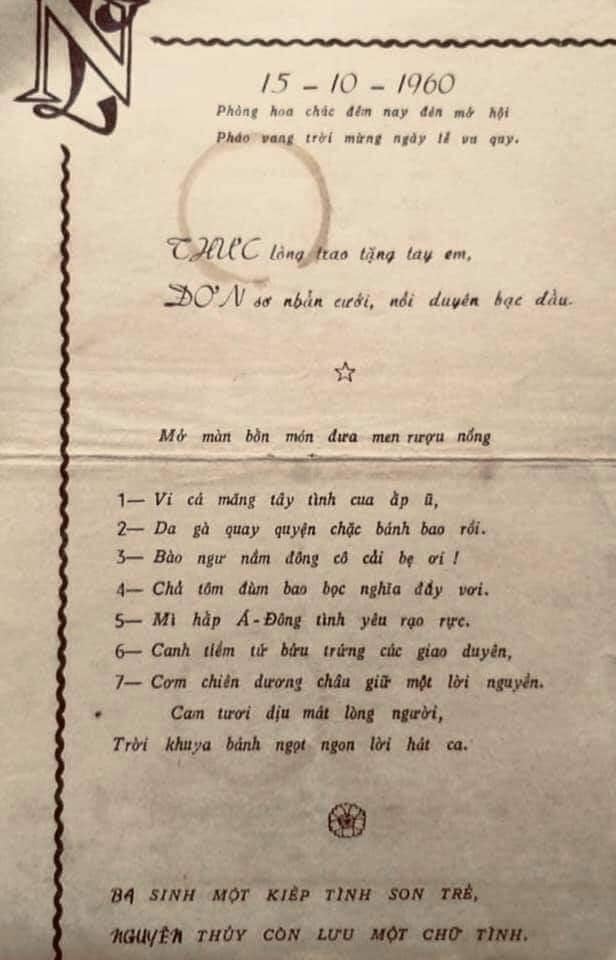 NL
15 - 10 - 1960
Phòng hoa chúc đêm nay đèn mở hội
Pháo vang trời mừng ngày lễ vu quy.
THỰC lòng trao tặng tay em,
ĐƠN sơ nhẫn cưới, nối duyên bạc đầu.
Mở màn bốn món đưa men rượu nồng
1— Vi cá măng tây tình cua ấp ủ,
2— Da gà quay quyện chặc bánh bao rồi.
3— Bào ngư nấm đông cô cải bẹ ơi !
4— Chả tôm đùm bao bọc nghĩa đầy vơi.
5— Mì hấp Á-Đông tình yêu rạo rực.
6— Canh tiềm tứ bửu trứng cúc giao duyên,
7— Cơm chiên dương châu giữ một lời nguyền.
Cam tươi dịu mát lòng người,
Trời khuya bánh ngọt ngon lời hát ca.
BA SINH MỘT KIẾP TÌNH SON TRẺ,
NGUYÊN THỦY CÒN LƯU MỘT CHỮ TÌNH.